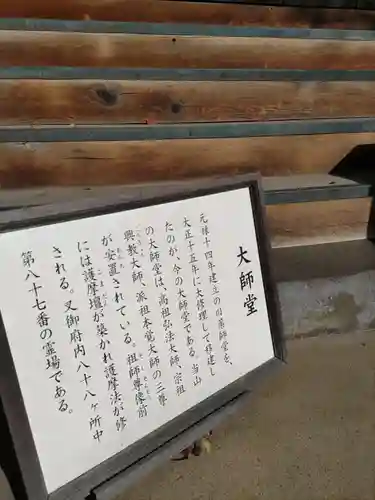 大師堂
元禄十四年建立の旧薬師堂を、
大正十五年に大修理して移建し
たのが、今の大師堂である。当山
の大師堂は、高祖弘法大師、宗祖
興教大師、派祖本覚大師の三尊
が安置されている。祖師尊像前
には護摩壇が築かれ護摩法が修
される。又御府内八十八ヶ所中
第八十七番の霊場である。